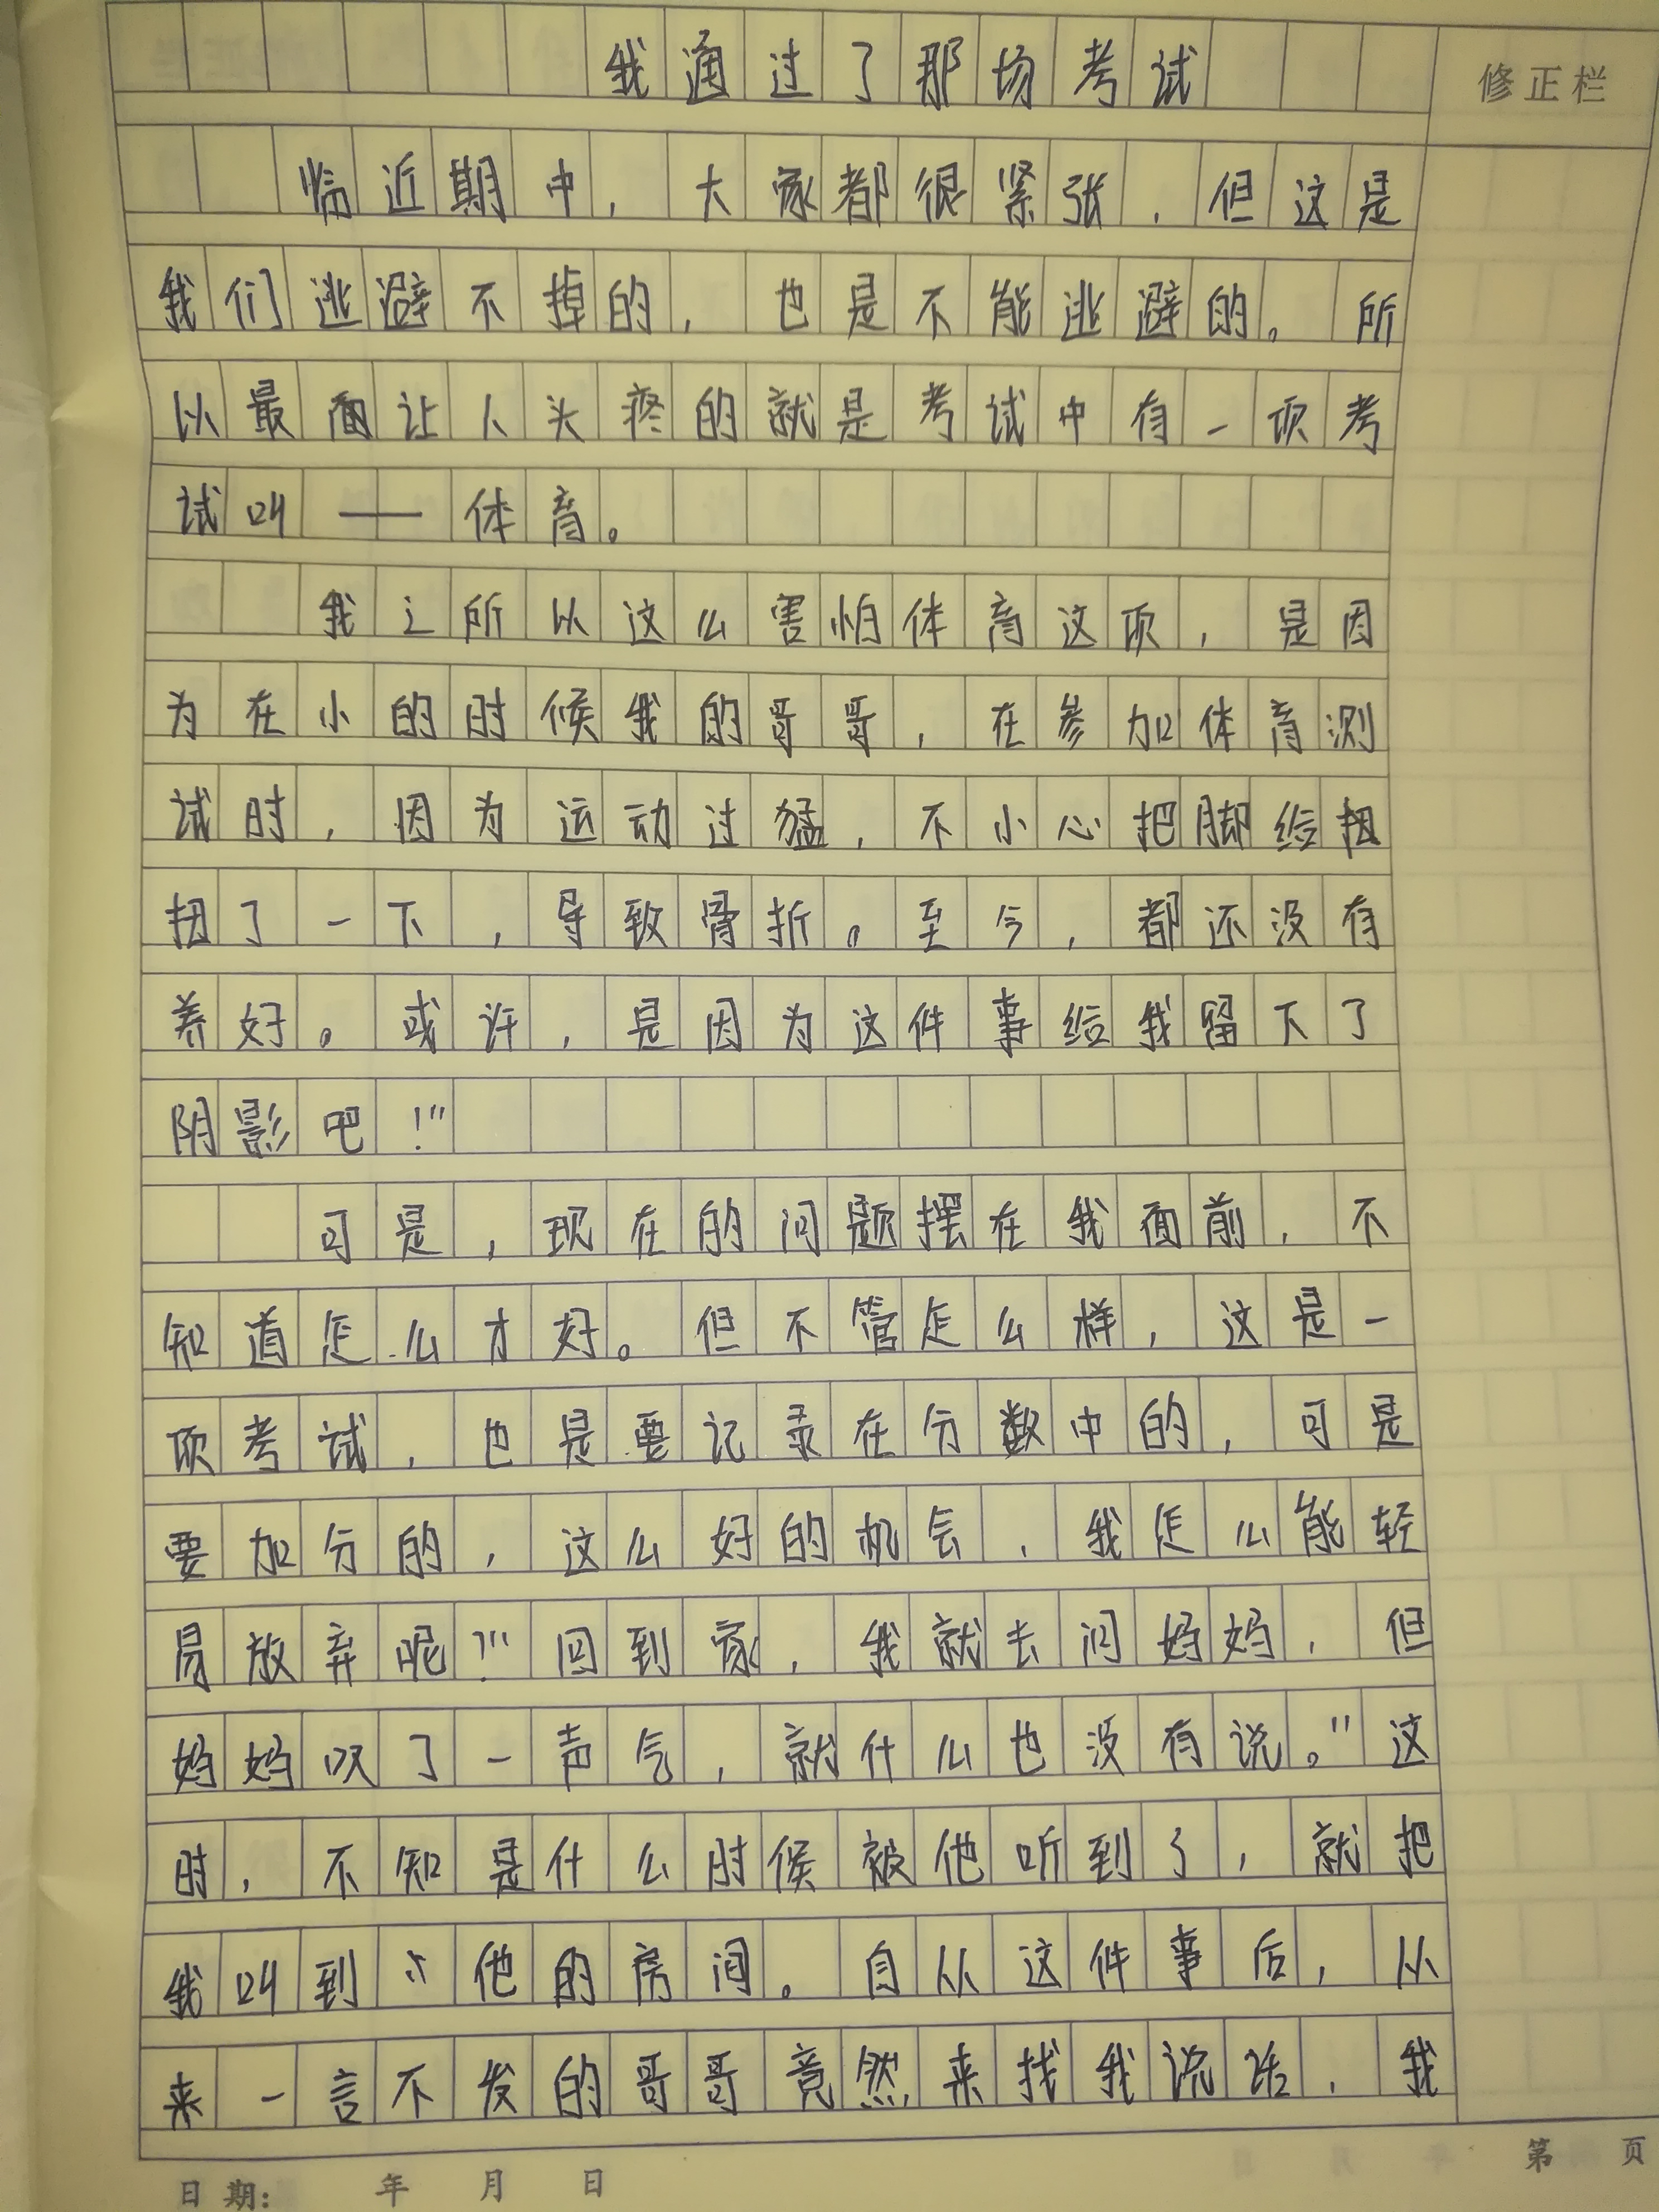 我通过了那场考试
修正栏
临近期中，大家都很紧张，但这是
我们逃避不掉的，也是不能逃避的。所
以最面让人头疼的就是考试中有一项考
试叫——体育。
我之所以这么害怕体育这项，是因
为在小的时候我的哥哥，在参加体育测
试时，因为运动过猛，不小心把脚给扭
扭了一下，导致骨折。至今，都还没有
养好。或许，是因为这件事给我留下了
阴影吧！”
可是，现在的问题摆在我面前，不
知道怎么才好。但不管怎么样，这是一
项考试，也是要记录在分数中的，可是
要加分的，这么好的机会，我怎么能轻
易放弃呢？”回到家，我就去问妈妈，但
妈妈叹了一声气，就什么也没有说。”这
时，不知是什么时候被他听到了，就把
我叫到他的房间。自从这件事后，从
来一言不发的哥哥竟然来找我说话，我
日期： 年 月 日
第 页